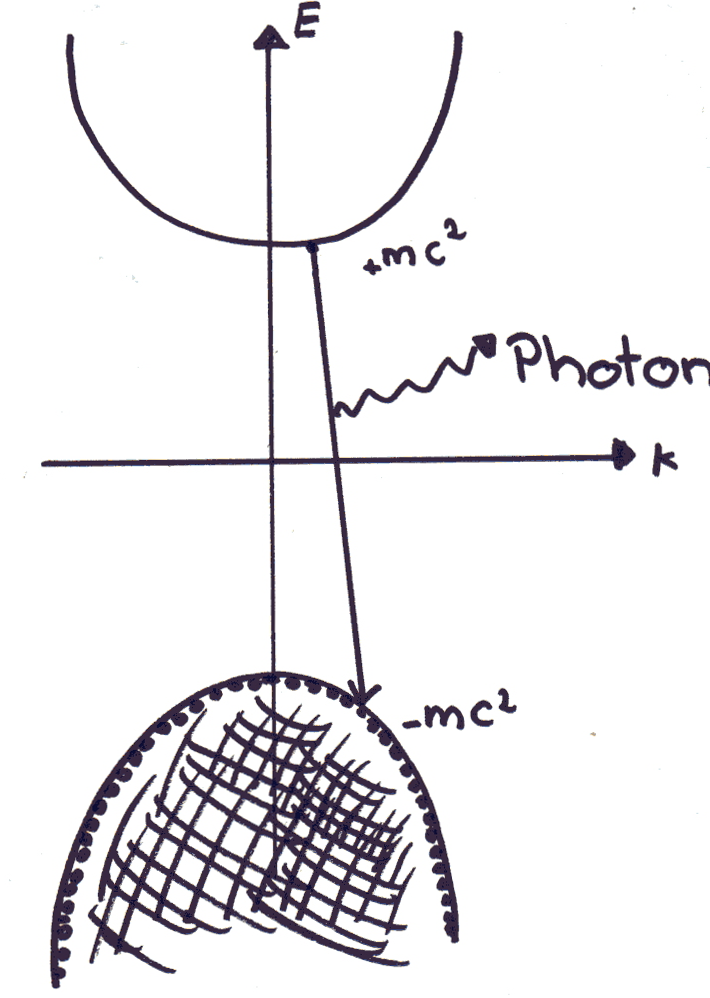 E
+mc²
Photon
k
-mc²